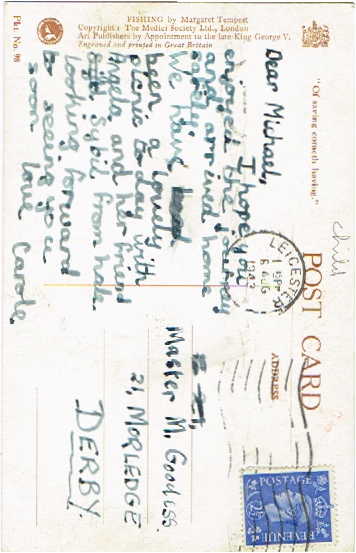 FISHING by Margaret Tempest
Copyright: The Medici Society Ltd., London
Art Publishers by Appointment to the late King George V.
Engraved and printed in Great Britain
Pkt. No. 98
"Of saving cometh having."
POST CARD
ADDRESS
child
Dear Michael,
I hope you
enjoyed the journey
and arrived home
safely.
We have had
been a lovely
picnic to day with
Angela and her friend
Sybil from
looking forward
to seeing you
soon
love Carole.
LEICESTER
1 15 PM
6 AUG
POSTAGE
2½D
REVENUE
Master M. Goodliss.
21, MORLEDGE
DERBY.